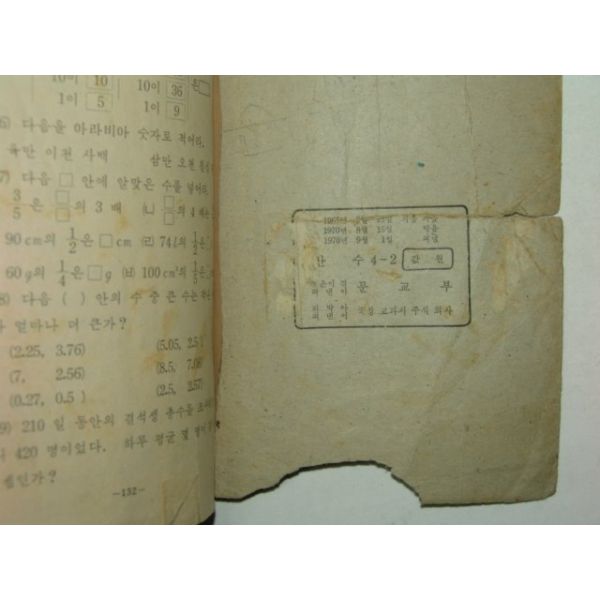 10이 10
10이 36
은
1이 5
1이 9
6) 다음을 아라비아 숫자로 적어라.
육만 이천 사백 삼만 오천
7) 다음 □ 안에 알맞은 수를 넣어라.
3/5 은 □/□ 의 3 배 ㈏ □/□ 의 4 배는
90 cm의 1/2 은 □ cm ㈑ 74 l의 1/2 은
60 g의 1/4 은 □ g ㈓ 100 cm의 1/5 은
8) 다음 ( ) 안의 수 중 큰 수는
얼마나 더 큰가?
(2.25, 3.76) (5.05,
(7, 2.56) (8.5,
(0.27, 0.5 ) (2.5, 2.57)
9) 210 일 동안의 결석생 총수를
420 명이었다. 하루 평균 몇 명이
셈인가?
—132—
1970년 8월 15일
1970년 9월 1일 펴냄
산 수 4-2 값 원
문 교 부
국정 교과서 주식 회사